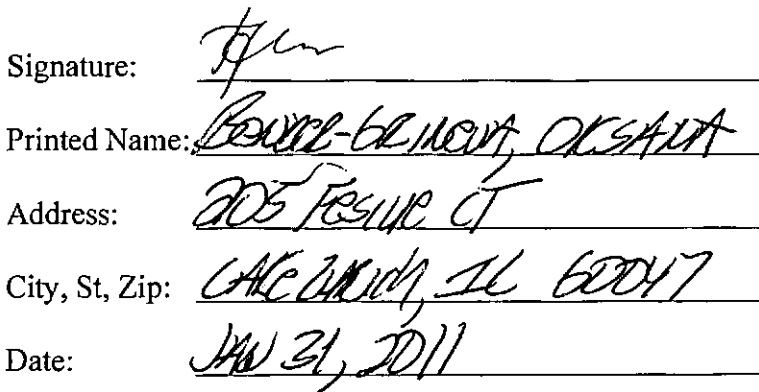 Signature:
Printed Name: OKSANA
Address: 205 CT
City, St, Zip: LAKE ZURICH, IL 60047
Date: JAN 31, 2011